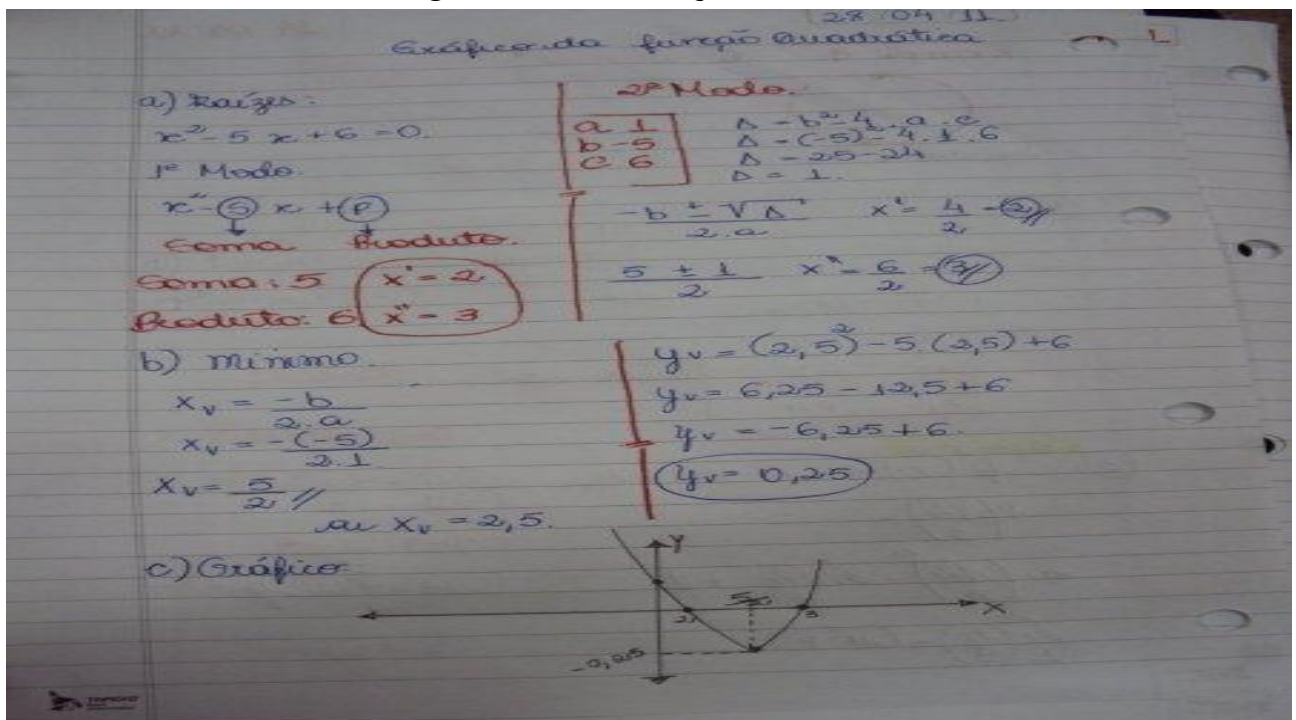 28 04 11
Gráfico da função Quadrática
1
a) Raízes:
x² - 5 x + 6 = 0.
1º Modo.
x² - (S) x + (P)
Soma Produto.
Soma: 5
Produto: 6
x' = 2
x" = 3
2º Modo.
a 1
b -5
c 6
Δ = b² - 4 . a . c
Δ = (-5)² - 4 . 1 . 6
Δ = 25 - 24
Δ = 1.
-b ± √Δ / 2.a x' = 4/2 = 2
5 ± 1 / 2 x" = 6/2 = 3
b) mínimo.
x_v = -b / 2.a
x_v = -(-5) / 2.1
x_v = 5/2 //
ou x_v = 2,5.
y_v = (2,5)² - 5.(2,5) + 6
y_v = 6,25 - 12,5 + 6
y_v = -6,25 + 6.
y_v = 0,25
c) Gráfico
Y
5/2
2 3
X
-0,25